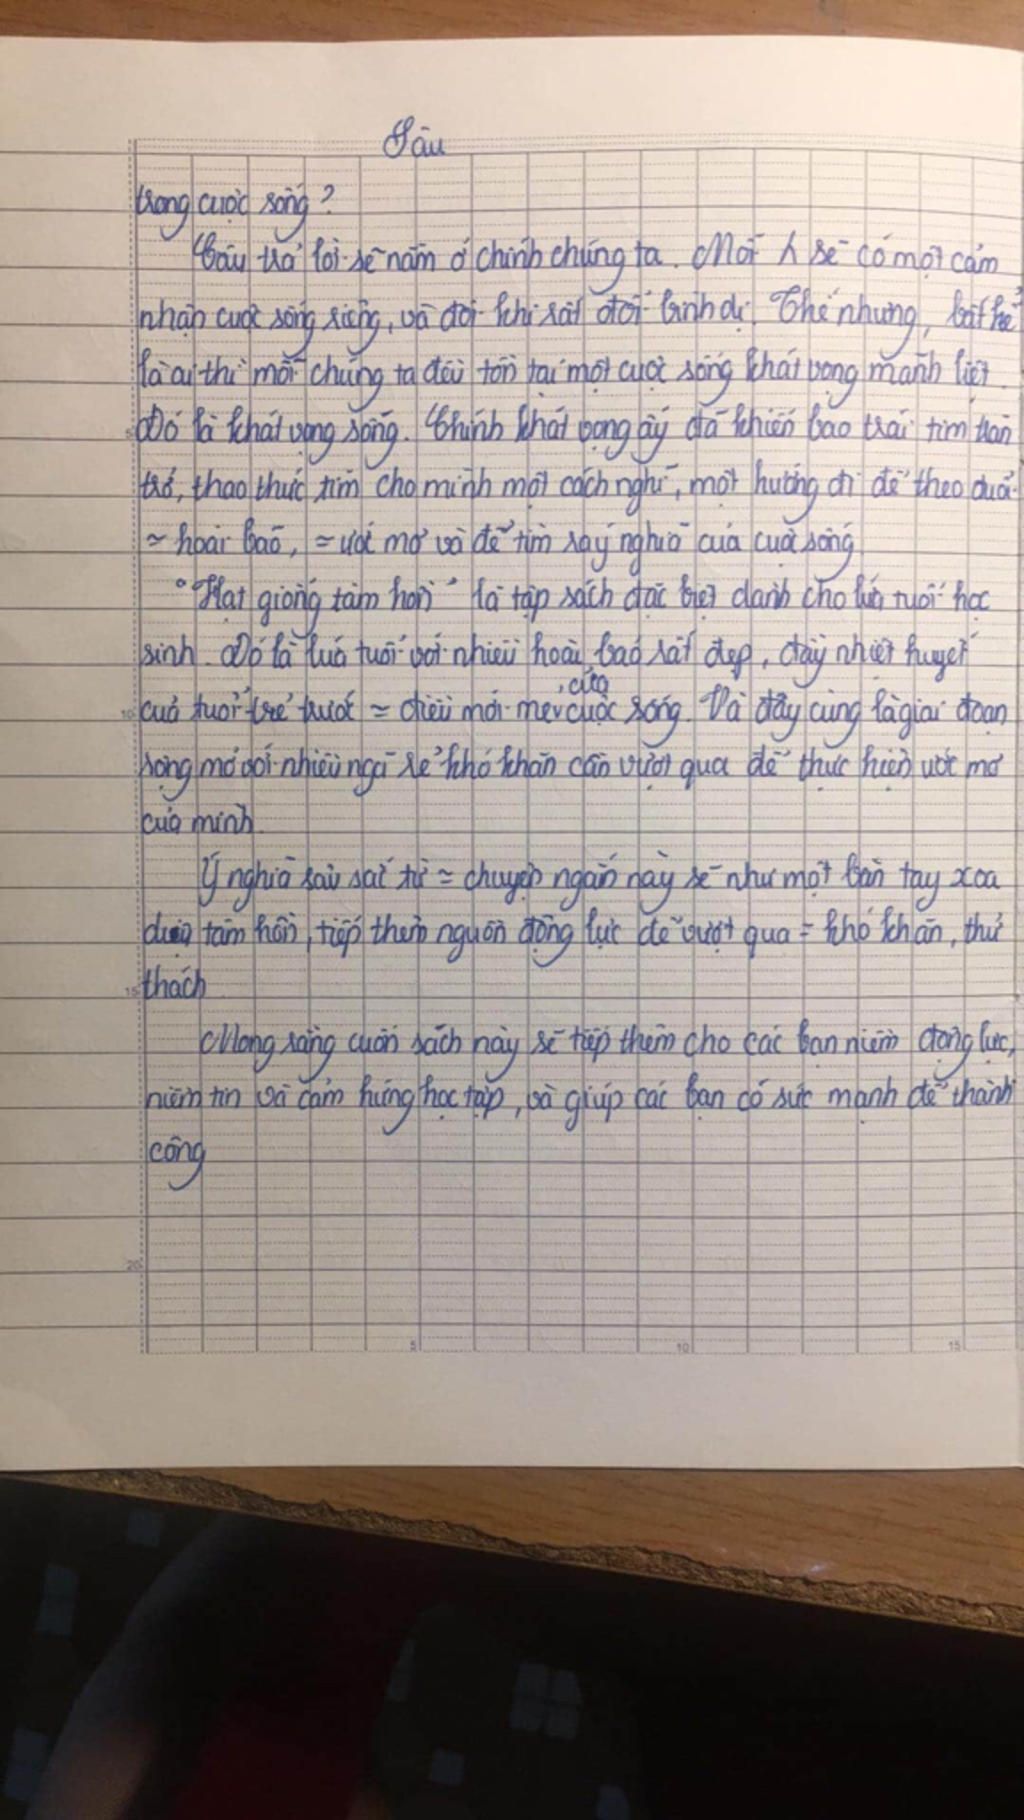 Sâu
trong cuộc sống?
Câu trả lời sẽ nằm ở chính chúng ta. Mỗi λ sẽ có một cảm
nhận cuộc sống riêng, và đôi khi rất đỗi bình dị. Thế nhưng, bất kể
là ai thì mỗi chúng ta đều tồn tại một cuộc sống khát vọng mãnh liệt
Đó là khát vọng sống. Chính khát vọng ấy đã khiến bao trái tim trăn
trở, thao thức tìm cho mình một cách nghĩ, một hướng đi để theo đuổi
≈ hoài bão, ≈ ước mơ và để tìm ra ý nghĩa của cuộc sống
"Hạt giống tâm hồn" là tập sách đặc biệt dành cho lứa tuổi học
sinh. Đó là lứa tuổi với nhiều hoài bão rất đẹp, đầy nhiệt huyết
của tuổi trẻ trước ≈ điều mới mẻ của cuộc sống. Và đây cũng là giai đoạn
sống mở với nhiều ngã rẽ khó khăn cần vượt qua để thực hiện ước mơ
của mình
Ý nghĩa sâu sắc từ ≈ chuyện ngắn này sẽ như một bàn tay xoa
dịu tâm hồn, tiếp thêm nguồn động lực để vượt qua = khó khăn, thử
thách
Mong rằng cuốn sách này sẽ tiếp thêm cho các bạn niềm động lực,
niềm tin và cảm hứng học tập, và giúp các bạn có sức mạnh để thành
công
5
10
15
20
5
10
15